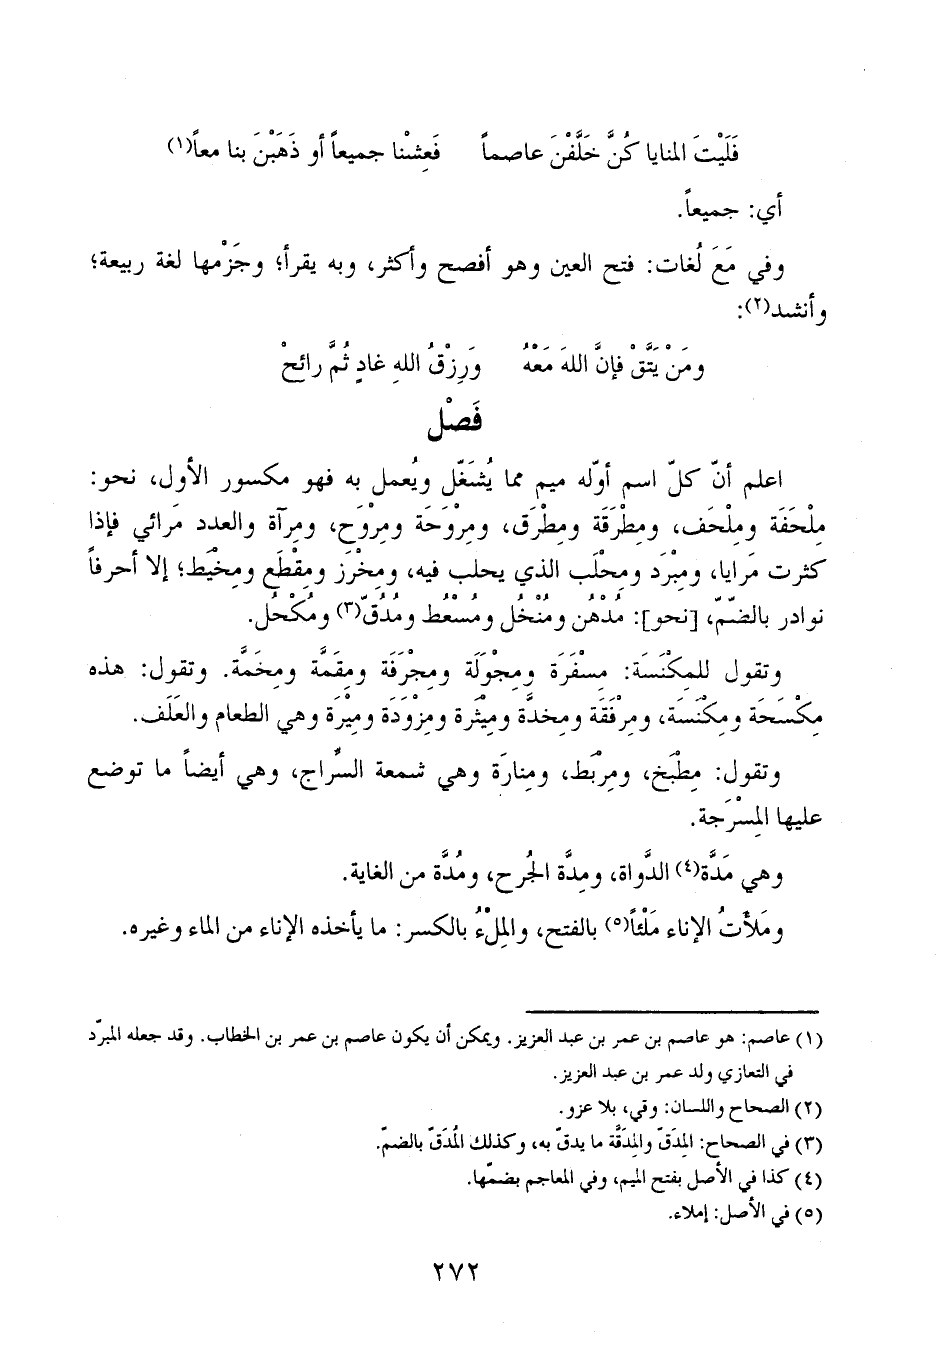 فَلَيْتَ المنايا كُنَّ خَلَّفْنَ عاصماً فَعِشْنا جميعاً أو ذَهَبْنَ بنا معاً(١)
أي: جميعاً.
وفي مَعَ لُغات: فتح العين وهو أفصح وأكثر، وبه يقرأ؛ وجَزْمها لغة ربيعة؛
وأنشد(٢):
ومَنْ يَتَّقْ فإنَّ اللهَ مَعْهُ ورِزْقُ اللهِ غادٍ ثُمَّ رائحْ
فَصْل
اعلم أنّ كلّ اسم أوّله ميم مما يُشتَغَل ويُعمل به فهو مكسور الأول، نحو:
مِلْحَفَة ومِلْحَف، ومِطْرَقة ومِطْرَق، ومِرْوَحَة ومِرْوَح، ومِرآة والعدد مَرائي فإذا
كثرت مَرايا، ومِبْرَد ومِحْلَب الذي يحلب فيه، ومِخْرَز ومِقْطَع ومِخْيَط؛ إلا أحرفاً
نوادر بالضّمّ، [نحو]: مُدْهُن ومُنْخُل ومُسْعُط ومُدُقّ(٣) ومُكْحُل.
وتقول للمِكْنَسَة: مِسْفَرَة ومِجْوَلَة ومِجْرَفَة ومِقَمَّة ومِخَمَّة. وتقول: هذه
مِكْسَحَة ومِكْنَسَة، ومِرْفَقَة ومِخدَّة ومِيْثَرة ومِزْوَدَة ومِيْرَة وهي الطعام والعَلَف.
وتقول: مِطْبَخ، ومِرْبَط، ومِنارَة وهي شمعة السِّراج، وهي أيضاً ما توضع
عليها المِسْرَجة.
وهي مَدَّة(٤) الدَّواة، ومِدَّة الجُرح، ومُدَّة من الغاية.
ومَلأْتُ الإناء مَلْئاً(٥) بالفتح، والمِلْءُ بالكسر: ما يأخذه الإناء من الماء وغيره.
(١) عاصم: هو عاصم بن عمر بن عبد العزيز. ويمكن أن يكون عاصم بن عمر بن الخطاب. وقد جعله المبرّد
في التعازي ولد عمر بن عبد العزيز.
(٢) الصحاح واللسان: وقي، بلا عزو.
(٣) في الصحاح: المِدَقّ والمِدَقَّة ما يدقّ به، وكذلك المُدَقّ بالضمّ.
(٤) كذا في الأصل بفتح الميم، وفي المعاجم بضمّها.
(٥) في الأصل: إملاء.
٢٧٢